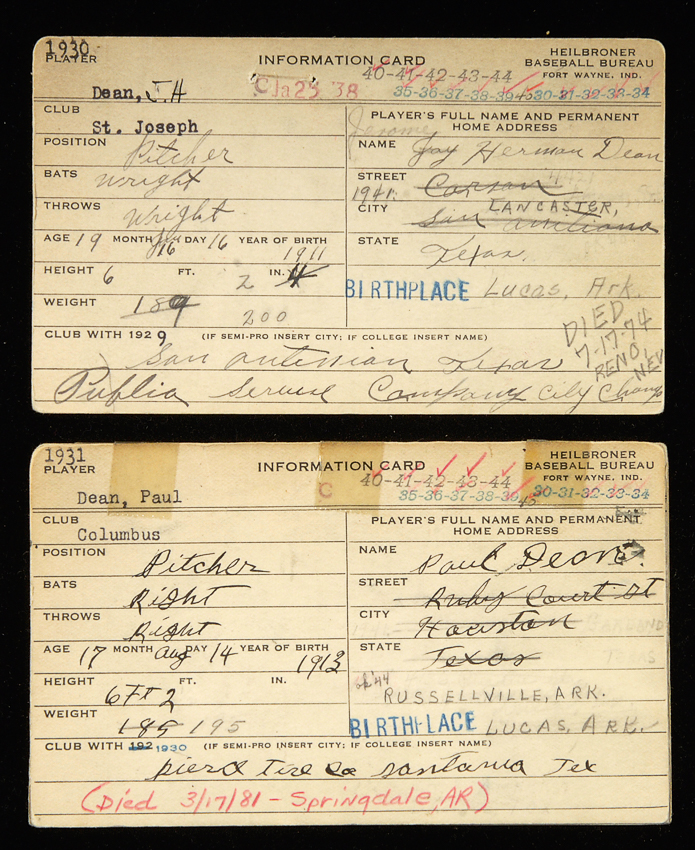 1930
PLAYER
INFORMATION CARD
HEILBRONER
BASEBALL BUREAU
FORT WAYNE, IND.
40-41-42-43-44
Dean, J.H
C Ja 25 '38
35-36-37-38-39-45 30-31-32-33-34
CLUB
St. Joseph
PLAYER'S FULL NAME AND PERMANENT
HOME ADDRESS
Jerome
POSITION Pitcher
NAME Jay Herman Dean
BATS wright
STREET Carson
1941:
THROWS wright
CITY LANCASTER,
San antiliano
AGE 19 MONTH Jan 16 DAY 16 YEAR OF BIRTH 1911
STATE Texas.
HEIGHT 6 FT. 2 IN. 4
BIRTHPLACE Lucas, Ark.
WEIGHT 189 200
CLUB WITH 1929 (IF SEMI-PRO INSERT CITY; IF COLLEGE INSERT NAME)
San antinian Texas
DIED
7-17-74
RENO,
NEV
Public Servise Company City Champ
1931
PLAYER
INFORMATION CARD
HEILBRONER
BASEBALL BUREAU
FORT WAYNE, IND.
40-41-42-43-44
Dean, Paul
C
35-36-37-38-39 45 30-31-32-33-34
CLUB
Columbus
PLAYER'S FULL NAME AND PERMANENT
HOME ADDRESS
POSITION Pitcher
NAME Paul Dean
BATS Right
STREET Ruby Court St
THROWS Right
CITY Houston
GARLAND
AGE 17 MONTH aug DAY 14 YEAR OF BIRTH 1913
STATE Texas
TEXAS
HEIGHT 6 FT 2 FT. IN.
'44
RUSSELLVILLE, ARK.
WEIGHT 185 195
BIRTHPLACE LUCAS, ARK.
CLUB WITH 192 1930 (IF SEMI-PRO INSERT CITY; IF COLLEGE INSERT NAME)
pierd Tire co santania Tex
(Died 3/17/81 - Springdale, AR)